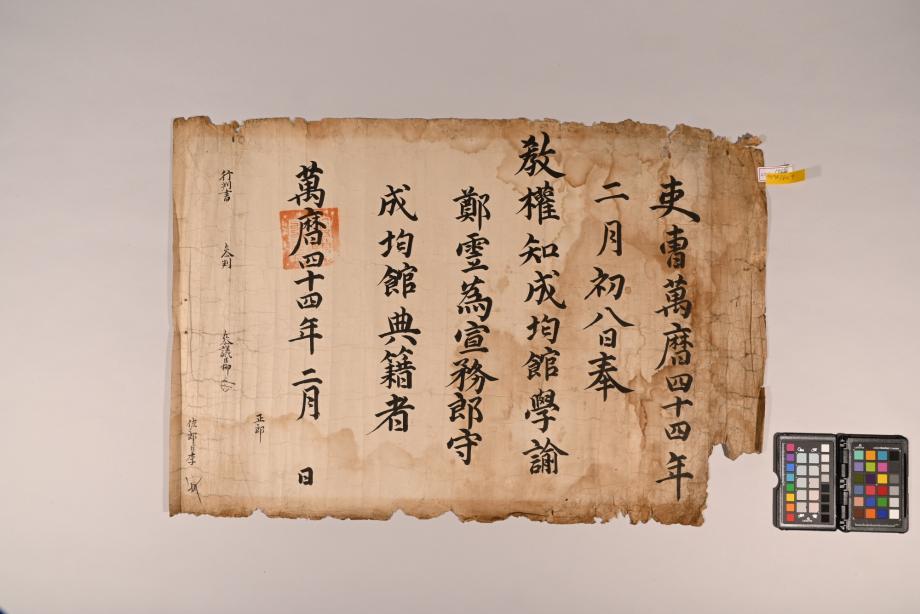 吏曹萬曆四十四年
二月初八日奉
敎權知成均館學諭
鄭霊為宣務郎守
成均館典籍者
萬曆四十四年二月 日
行判書 參判 參議臣柳
正郎
佐郎臣李